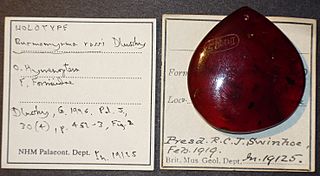 HOLOTYPE
Burmomyrma rossi Dlussky
O. Hymenoptera
F. Formicidae
Dlussky, G, 1996, Pal. J,
30(4), p. 452-3, Fig. 2
NHM Palaeont. Dept. In. 19125
Form
Loca
Presd. R.C.J. Swinhoe,
Feb. 1919.
Brit. Mus. Geol. Dept. In. 19125.